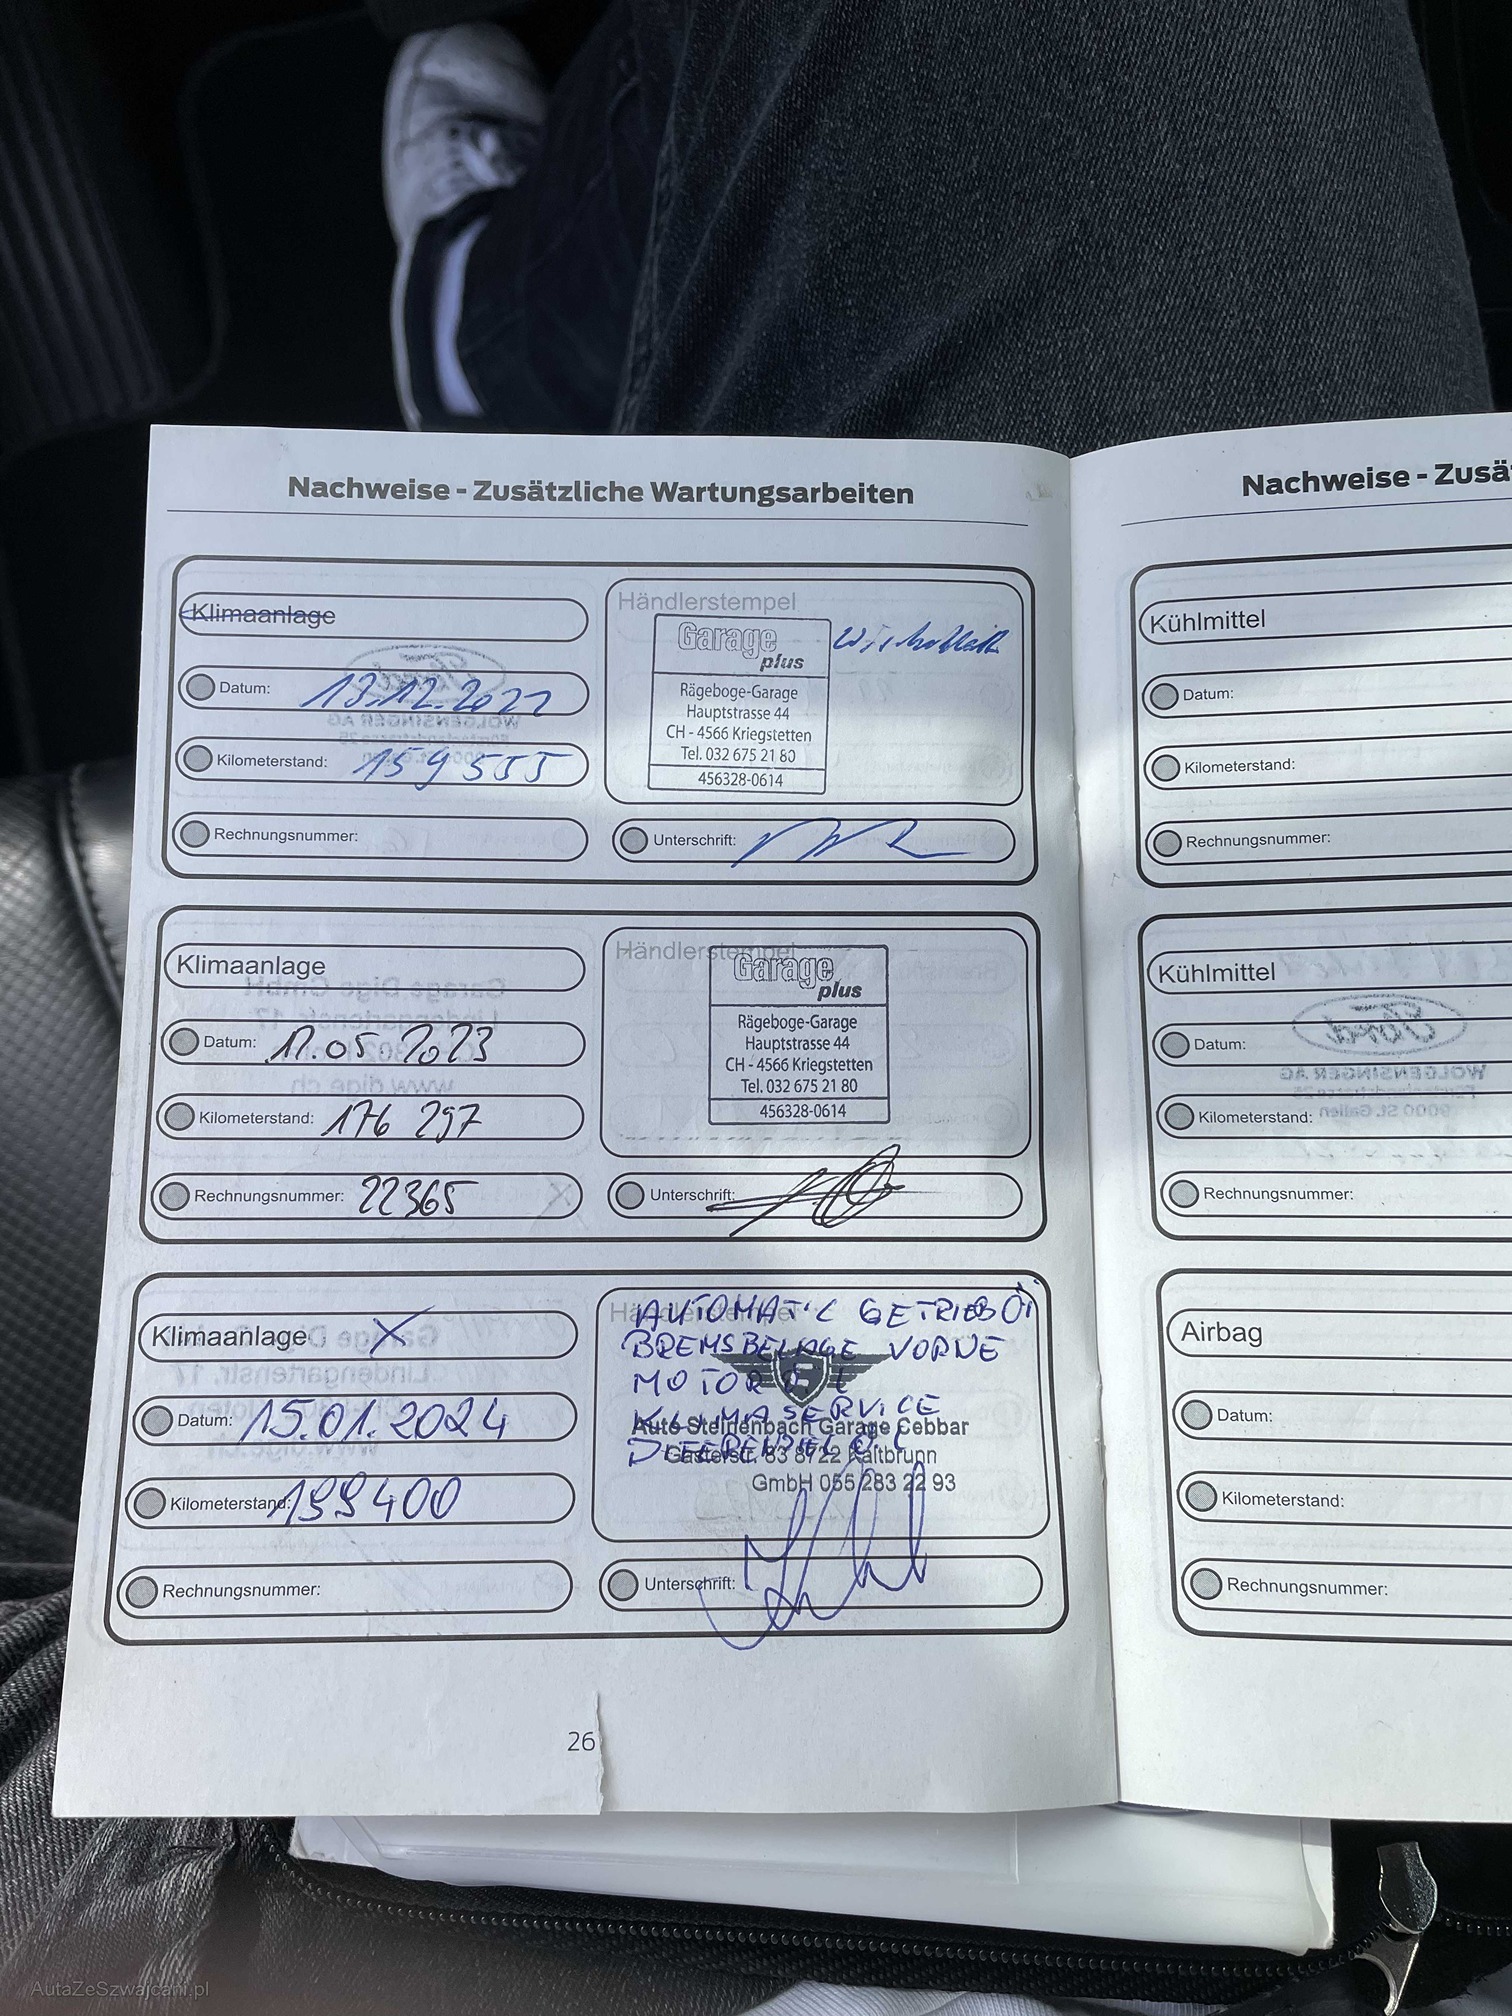 Nachweise - Zusätzliche Wartungsarbeiten
Klimaanlage
Datum: 13.12.2022
Kilometerstand: 159555
Rechnungsnummer:
Händlerstempel
Garage
plus
Rägeboge-Garage
Hauptstrasse 44
CH - 4566 Kriegstetten
Tel. 032 675 21 80
456328-0614
Unterschrift:
Klimaanlage
Datum: 17.05 2023
Kilometerstand: 176 297
Rechnungsnummer: 22365
Händlerstempel
Garage
plus
Rägeboge-Garage
Hauptstrasse 44
CH - 4566 Kriegstetten
Tel. 032 675 21 80
456328-0614
Unterschrift:
Klimaanlage X
Datum: 15.01.2024
Kilometerstand: 199400
Rechnungsnummer:
Händlerstempel
AUTOMATIC GETRIEBÖL
BREMSBELAGE VORNE
MOTORÖL
KLIMASERVICE
Auto Steinenbach Garage Cebbar
Gasterstr. 83 8722 Kaltbrunn
GmbH 055 283 22 93
Unterschrift:
26
Nachweise - Zusä
Kühlmittel
Datum:
Kilometerstand:
Rechnungsnummer:
Kühlmittel
Datum:
Kilometerstand:
Rechnungsnummer:
Airbag
Datum:
Kilometerstand:
Rechnungsnummer:
AutaZeSzwajcarii.pl